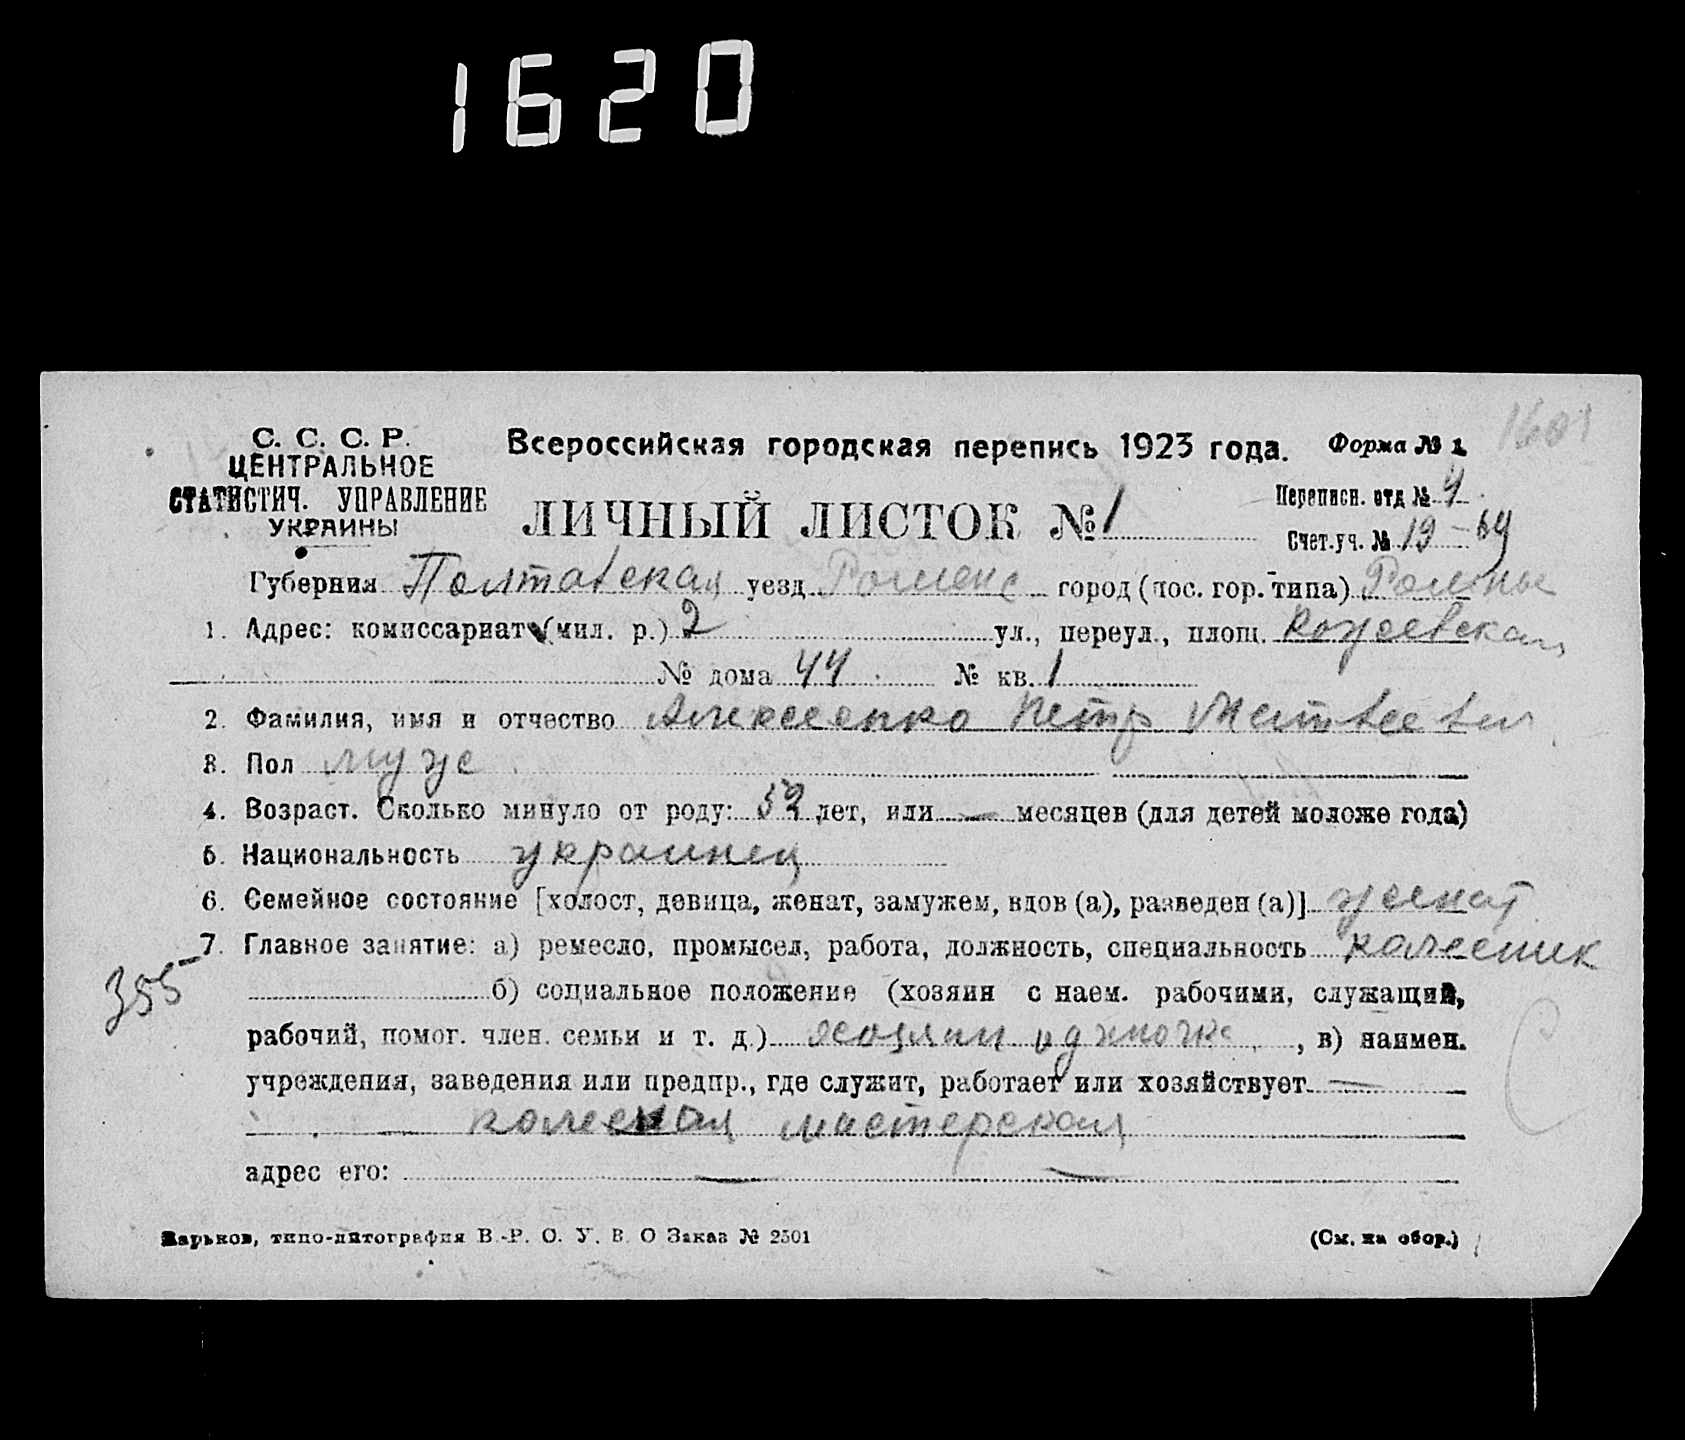 1620
1601
С. С. С. Р.
ЦЕНТРАЛЬНОЕ
СТАТИСТИЧ. УПРАВЛЕНИЕ
УКРАИНЫ
Всероссийская городская перепись 1923 года. Форма № 1.
ЛИЧНЫЙ ЛИСТОК № 1
Переписн. отд № 4
Счет.уч. № 19-64
Губерния Полтавская уезд Роменс город (пос. гор. типа) Ромны
1. Адрес: комиссариат (мил. р.) 2 ул., переул., площ.
№ дома 44 № кв. 1
2. Фамилия, имя и отчество Алексеенко Петр Матвеевич
3. Пол муж
4. Возраст. Сколько минуло от роду: 52 лет, или — месяцев (для детей моложе года)
5. Национальность украинец
6. Семейное состояние [холост, девица, женат, замужем, вдов (а), разведен (а)] женат
7. Главное занятие: а) ремесло, промысел, работа, должность, специальность колесник
355
б) социальное положение (хозяин с наем. рабочими, служащий,
рабочий, помог. член. семьи и т. д.) хозяин одиночка, в) наимен.
учреждения, заведения или предпр., где служит, работает или хозяйствует —
колесная мастерская
адрес его: — —
Харьков, типо-литография В.-Р. О. У. В. О Заказ № 2501
(См. на обор.)